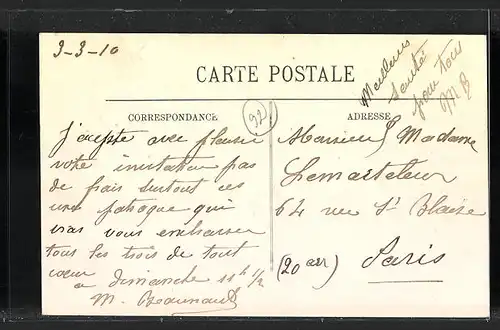 3-3-10
Meilleure
santé
pour tous
M B
CARTE POSTALE
92
CORRESPONDANCE
ADRESSE
j'acepte avec plaisir
votre invitation pas
de frais surtout ces
une patraque qui
vous embrasser
tous les trois de tout
cœur
a Dimanche 11h 1/2
M.
Monsieur Madame
Lemarteleur
64 rue St Blaise
(20 arr) Paris